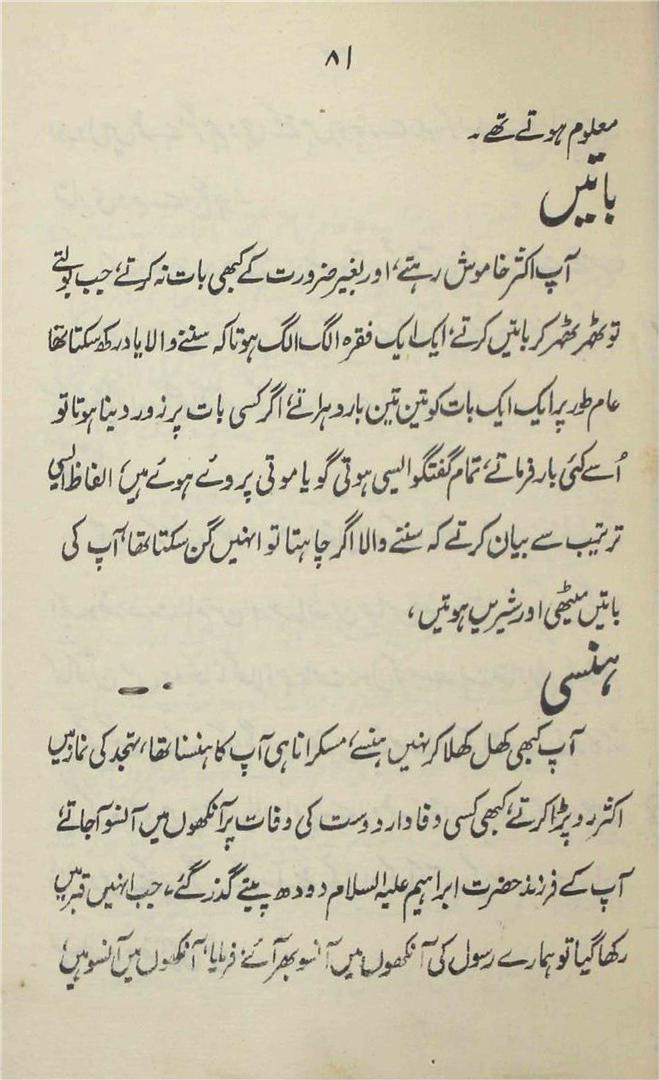 ۸۱
معلوم ہوتے تھے۔
باتیں
آپ اکثر خاموش رہتے، اور بغیر ضرورت کے کبھی بات نہ کرتے، جب بولتے
تو ٹھہر ٹھہر کر باتیں کرتے، ایک ایک فقرہ الگ الگ ہوتا کہ سننے والا یاد رکھ سکتا تھا
عام طور پر ایک ایک بات کو تین تین بار دہراتے، اگر کسی بات پر زور دینا ہوتا تو
اُسے کئی بار فرماتے، تمام گفتگو ایسی ہوتی گویا موتی پروئے ہوئے ہیں، الفاظ ایسی
ترتیب سے بیان کرتے کہ سننے والا اگر چاہتا تو انہیں گن سکتا تھا، آپ کی
باتیں میٹھی اور شیریں ہوتیں،
ہنسی
آپ کبھی کھل کھلا کر نہیں ہنسے، مسکرانا ہی آپ کا ہنسنا تھا، تہجد کی نماز میں
اکثر رو پڑا کرتے، کبھی کسی وفادار دوست کی وفات پر آنکھوں میں آنسو آجاتے،
آپ کے فرزند حضرت ابراہیم علیہ السلام دودھ پیتے گذر گئے، جب انہیں قبر میں
رکھا گیا تو ہمارے رسول کی آنکھوں میں آنسو بھر آئے، فرمایا، آنکھوں میں آنسو ہیں،